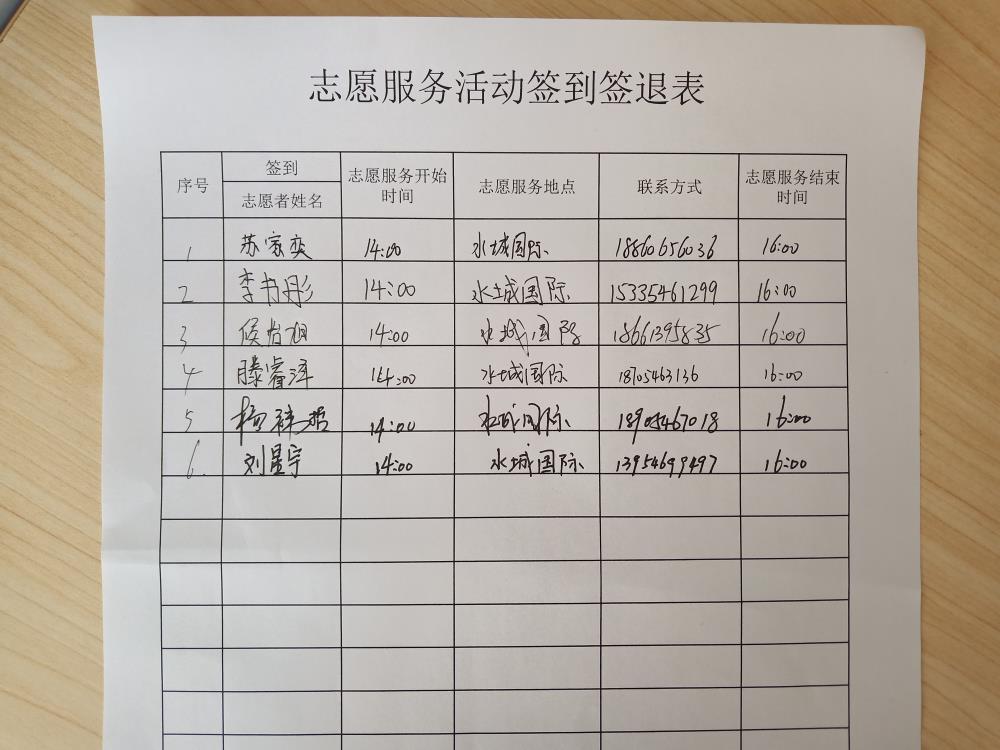 志愿服务活动签到签退表
序号 签到 志愿者姓名 志愿服务开始时间 志愿服务地点 联系方式 志愿服务结束时间
1 苏家奕 14:00 水城国际 18860656036 16:00
2 李书彤 14:00 水城国际 15335461299 16:00
3 侯怡旭 14:00 水城国际 18661395835 16:00
4 滕睿泽 14:00 水城国际 18705463136 16:00
5 杨 14:00 水城国际 18905467018 16:00
6. 刘星宇 14:00 水城国际 13954699497 16:00